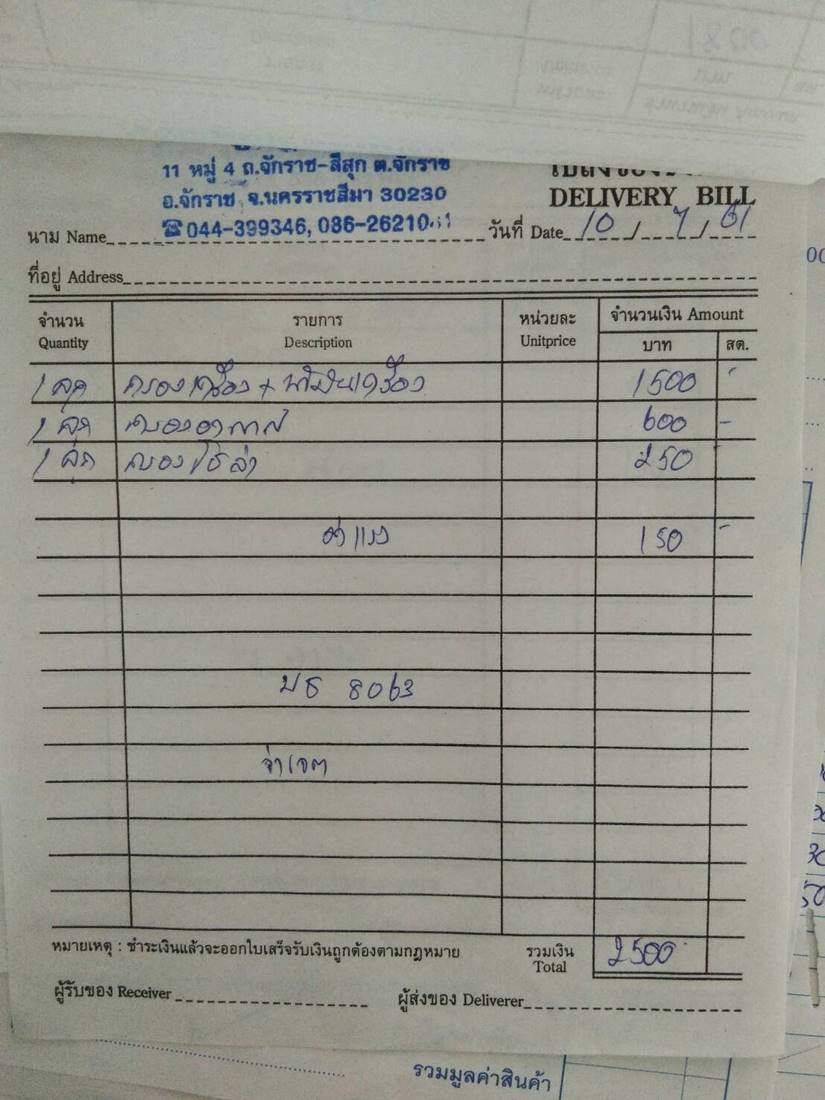 11 หมู่ 4 ถ.จักราช-สีสุก ต.จักราช
อ.จักราช จ.นครราชสีมา 30230
☎044-399346,
DELIVERY BILL
นาม Name
วันที่ Date 10 / 7 / 61
ที่อยู่ Address
จำนวน รายการ หน่วยละ จำนวนเงิน Amount
Quantity Description Unitprice บาท สต.
1 ลูก กรองเครื่อง + น้ำมันเครื่อง 1500 -
1 ลูก กรองอากาศ 600 -
1 ลูก กรองโซล่า 250
ค่าแรง 150 -
บธ 8063
จ่าเจต
หมายเหตุ : ชำระเงินแล้วจะออกใบเสร็จรับเงินถูกต้องตามกฎหมาย
รวมเงิน 2500
Total
ผู้รับของ Receiver
ผู้ส่งของ Deliverer
รวมมูลค่าสินค้า